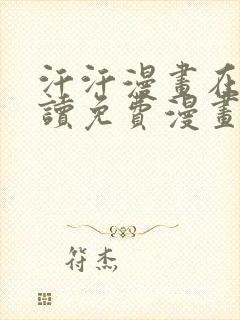 汗汗漫畫在
讀免費漫畫
符杰